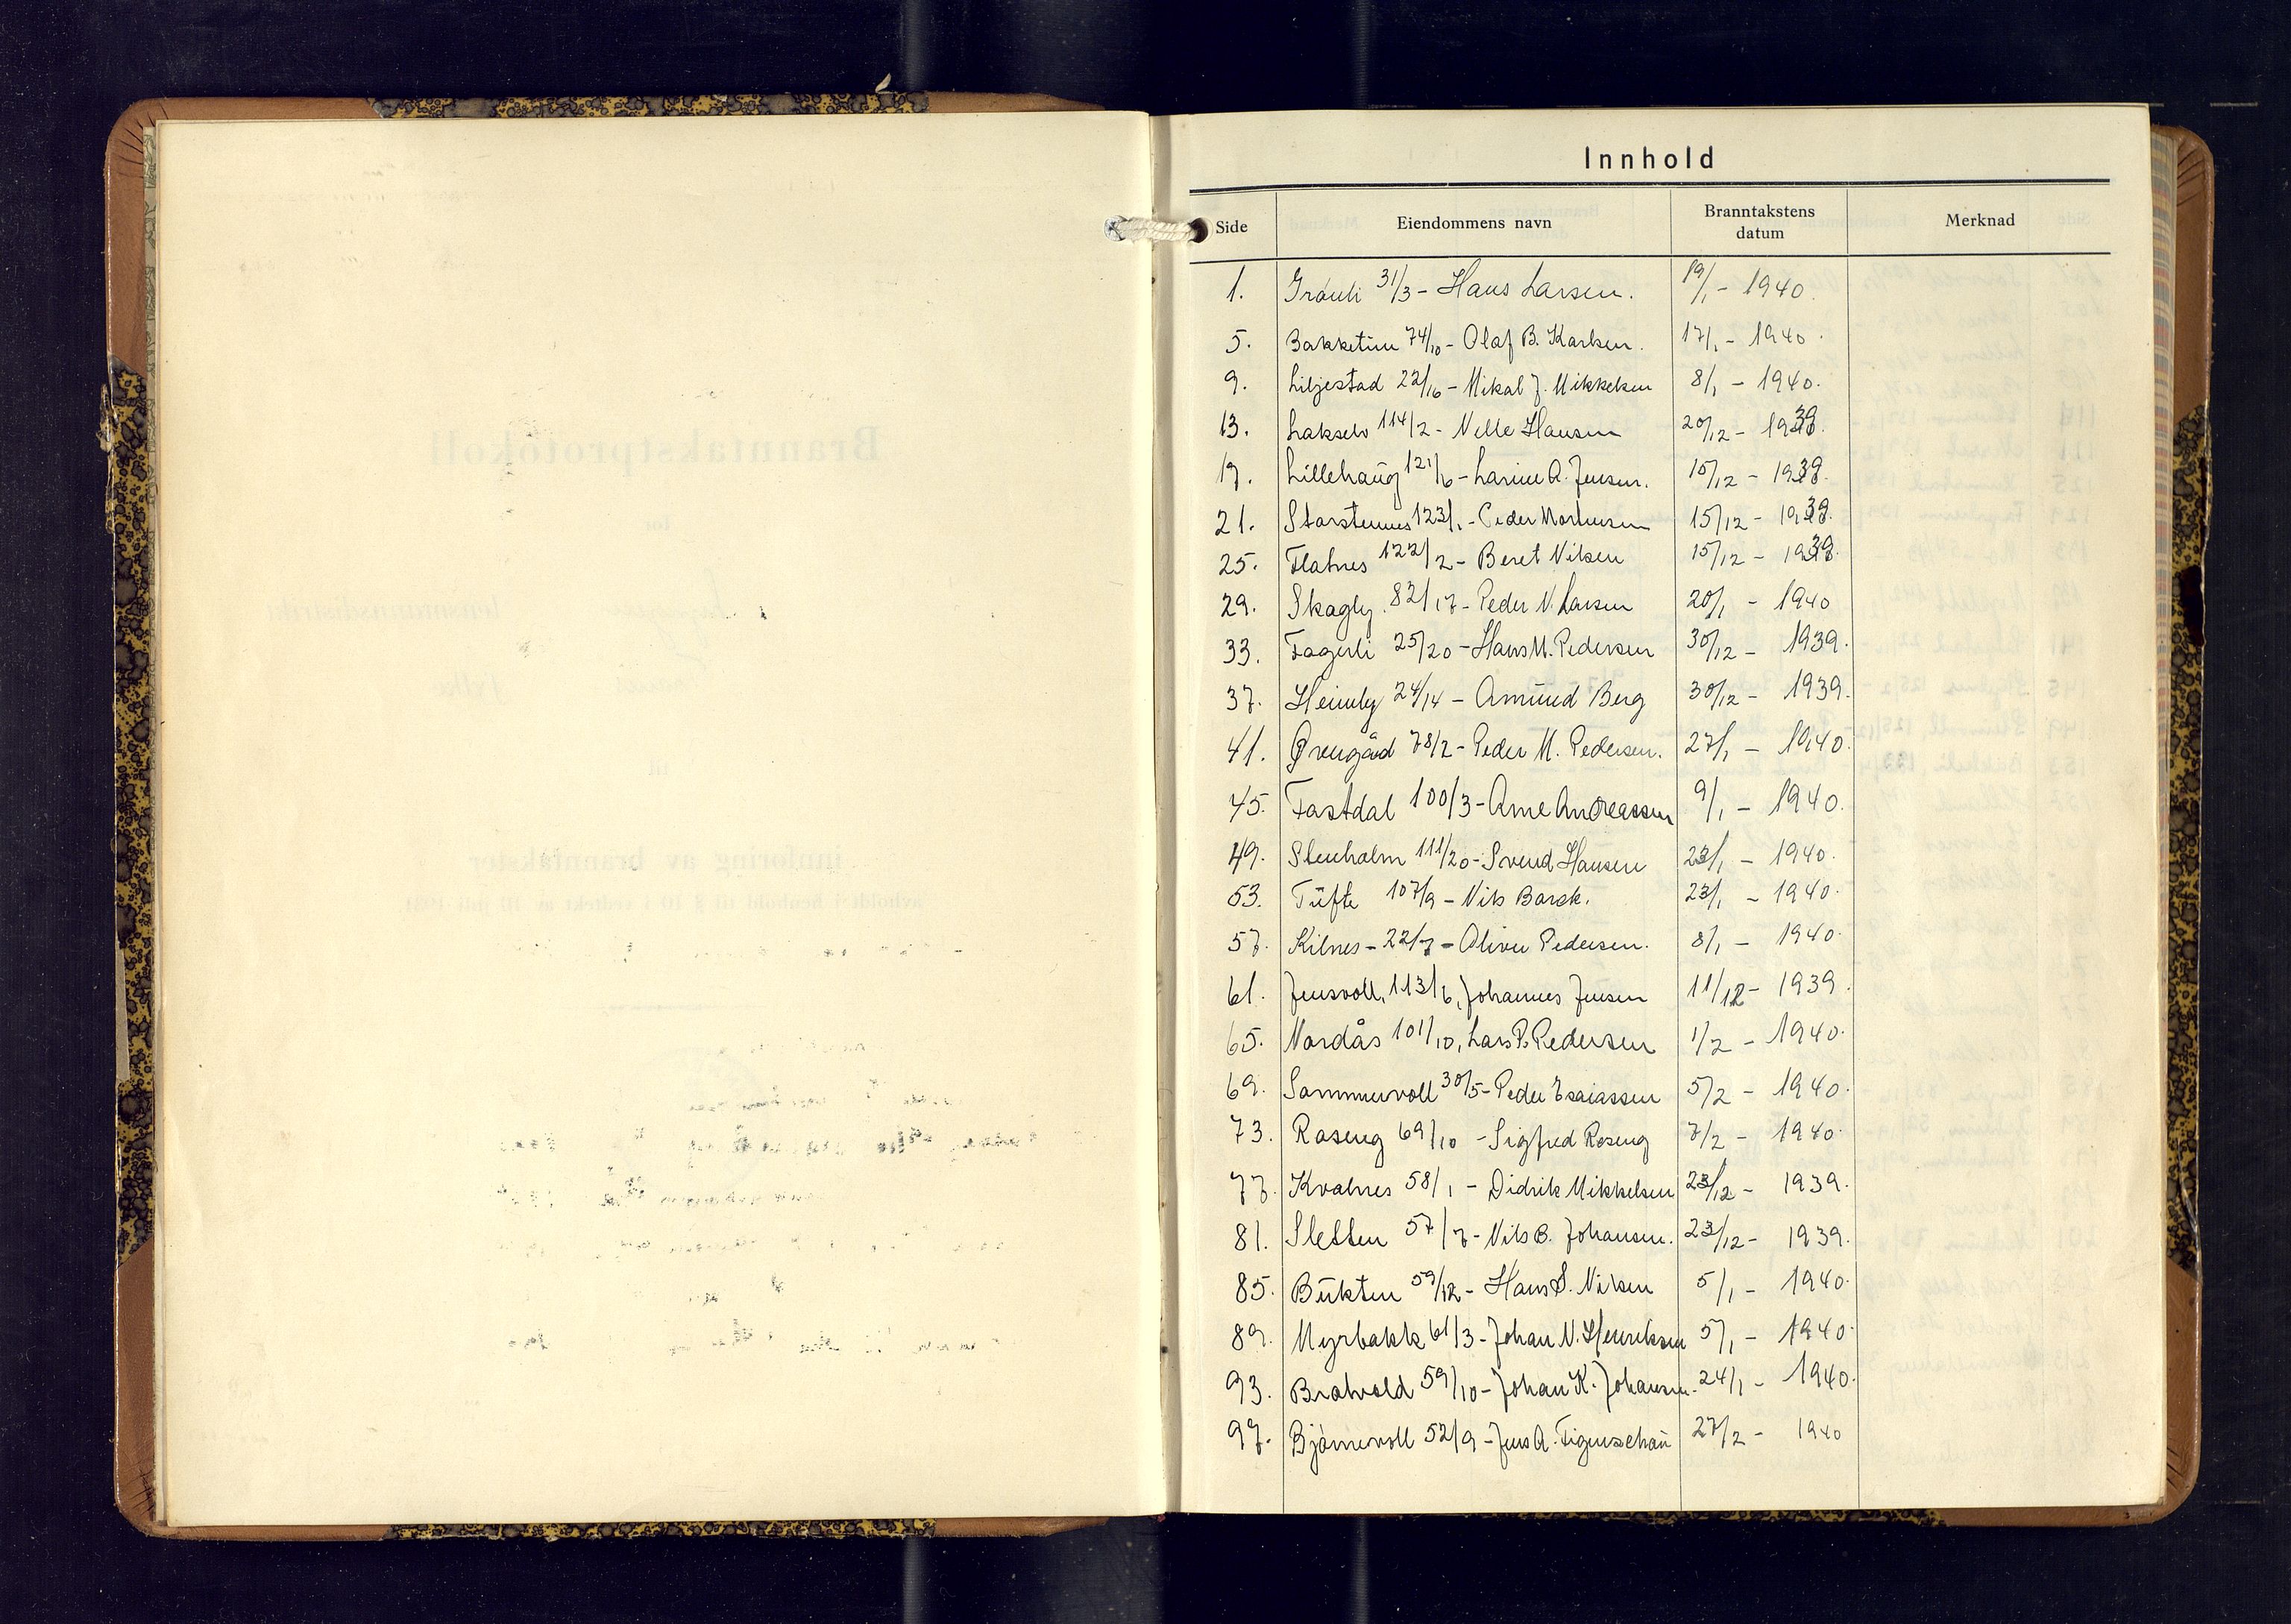 Innhold
Side Eiendommens navn Branntakstens datum Merknad
1. Gråuli 31/3 - Hans Larsen. 19/1 - 1940.
5. Bakketun 74/10 - Olaf B. Karlsen. 17/1 - 1940.
9. Liljestad 22/16 - Mikal J. Mikkelsen 8/1 - 1940.
13. Lakselv 114/2 - Nelle Hansen 20/12 - 1939.
17. Lillehaug 121/6 - Larine A. Jensen. 15/12 - 1939.
21. Storstennes 123/1 - Peder Mortensen 15/12 - 1939.
25. Flatnes 122/2 - Beret Nilsen 15/12 - 1939.
29. Skagly. 82/17 - Peder N. Larsen 20/1 - 1940
33. Fagerli 25/20 - Hans M. Pedersen 30/12 - 1939.
37. Heimly 24/14 - Amund Berg 30/12 - 1939.
41. Øvergård 78/2 - Peder M. Pedersen. 27/1 - 1940.
45. Fastdal 100/3 - Arne Andreassen 9/1 - 1940.
49. Stenholm 111/20 - Svend Hansen 23/1 - 1940.
53. Tufte 107/9 - Nils Barck. 23/1 - 1940.
57. Kilnes - 22/7 - Oliver Pedersen. 8/1 - 1940.
61. Jensvoll, 113/6, Johannes Jensen 11/12 - 1939.
65. Nordås 101/10, Lars P. Pedersen 1/2 - 1940.
69. Sommervoll 30/5 - Peder Esaiassen 5/2 - 1940.
73. Roseng 69/10 - Sigfred Roseng 7/2 - 1940.
77. Kvalnes 58/1 - Didrik Mikkelsen 23/12 - 1939.
81. Sletten 57/7 - Nils B. Johansen. 23/12 - 1939.
85. Bukten 59/12 - Hans S. Nilsen 5/1 - 1940.
89. Myrbakk 61/3 - Johan N. Henriksen 5/1 - 1940.
93. Bratvold 59/10 - Johan K. Johansen. 24/1 - 1940.
97. Bjørnevoll 52/9 - Jens A. Figenschau 27/2 - 1940